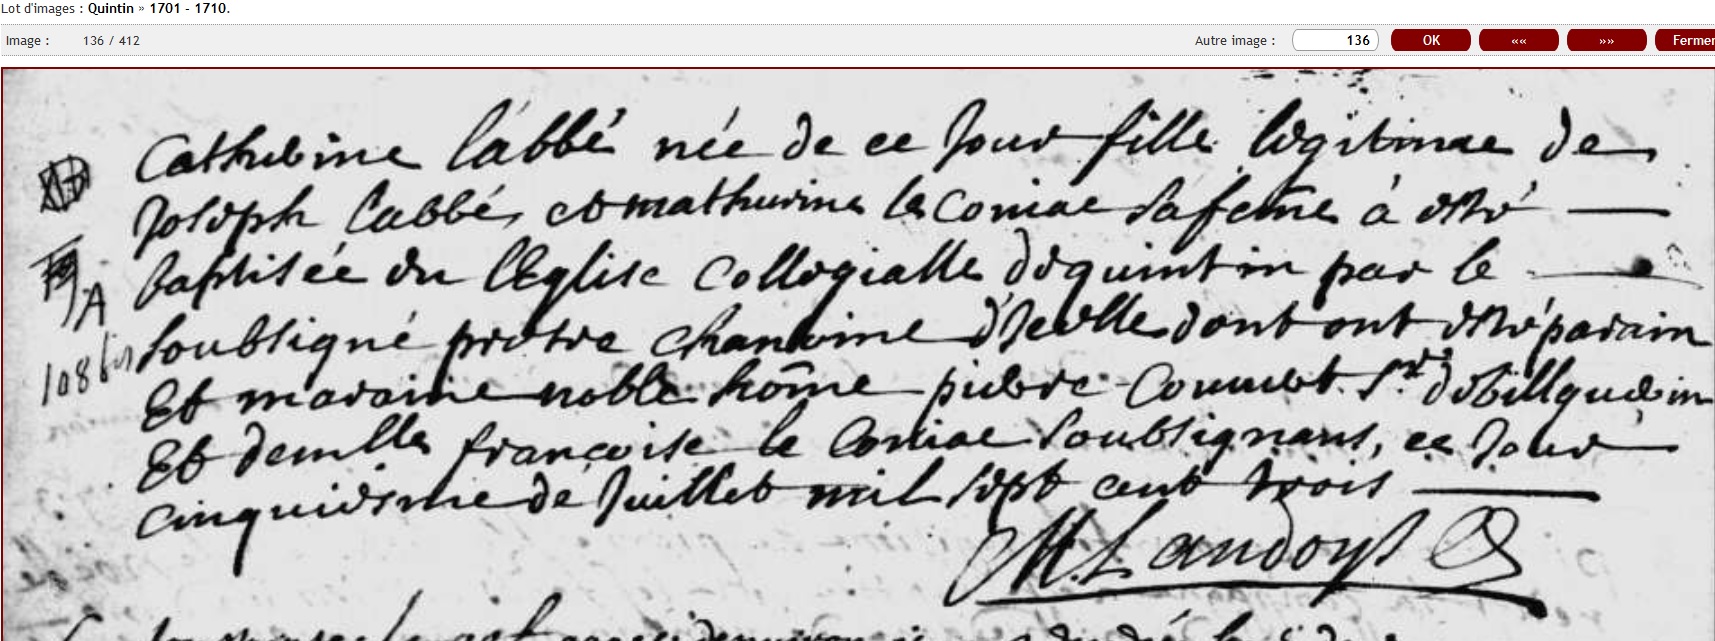 Lot d'images : Quintin » 1701 - 1710.
Image : 136 / 412 Autre image : 136 OK «« »» Fermer
Catherine l'abbé née de ce Jour fille legitimae de
Joseph Labbé, et mathurine le Coniac sa feme à esté
baptisée en l'Eglise Collegialle de quintin par le
soubsigné pretre chanoine d'Icelle dont ont esté parain
Et maraine noble hôme pierre Couvert Sr de
Et demlle françoise le Coniac soubsignans, ce Jour
cinquiesme de Juillet mil sept cent trois
A
108